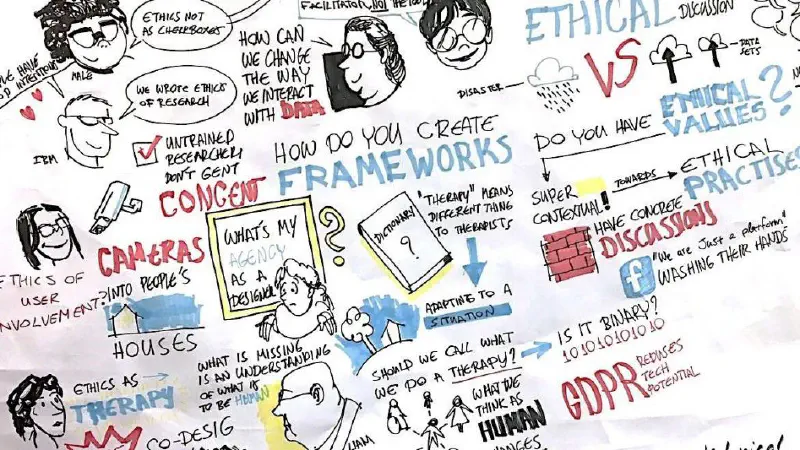 ETHICS NOT
AS CHECKBOXES
MALE
WE WROTE ETHICS
OF RESEARCH
IBM
UNTRAINED
RESEARCHERS
DON'T GENT
CONCENT
HOW CAN
WE CHANGE
THE WAY
WE INTERACT
WITH DATA
FACILITATOR, NOT THE
ETHICAL
DISCUSSION
DISASTER
VS
DATA
SETS
DO YOU HAVE
ETHICAL
VALUES?
SUPER
CONTEXTUAL!
TOWARDS
ETHICAL
PRACTISES
HAVE CONCRETE
DISCUSSIONS
f
"We are just a platform"
WASHING THEIR HANDS
HOW DO YOU CREATE
FRAMEWORKS
DICTIONARY
?
"THERAPY" MEANS
DIFFERENT THING
TO THERAPISTS
ADAPTING TO A
SITUATION
WHAT'S MY
AGENCY
AS A
DESIGNER
?
CAMERAS
INTO PEOPLE'S
HOUSES
ETHICS OF
USER
INVOLVEMENT?
ETHICS AS
THERAPY
CO-DESIG
WHAT IS MISSING
IS AN UNDERSTANDING
OF WHAT IS
TO BE HUMAN
SHOULD WE CALL WHAT
WE DO A THERAPY?
IS IT BINARY?
10101010101010
GDPR
REDUSES
TECH
POTENTIAL
WHAT WE
THINK AS
HUMAN